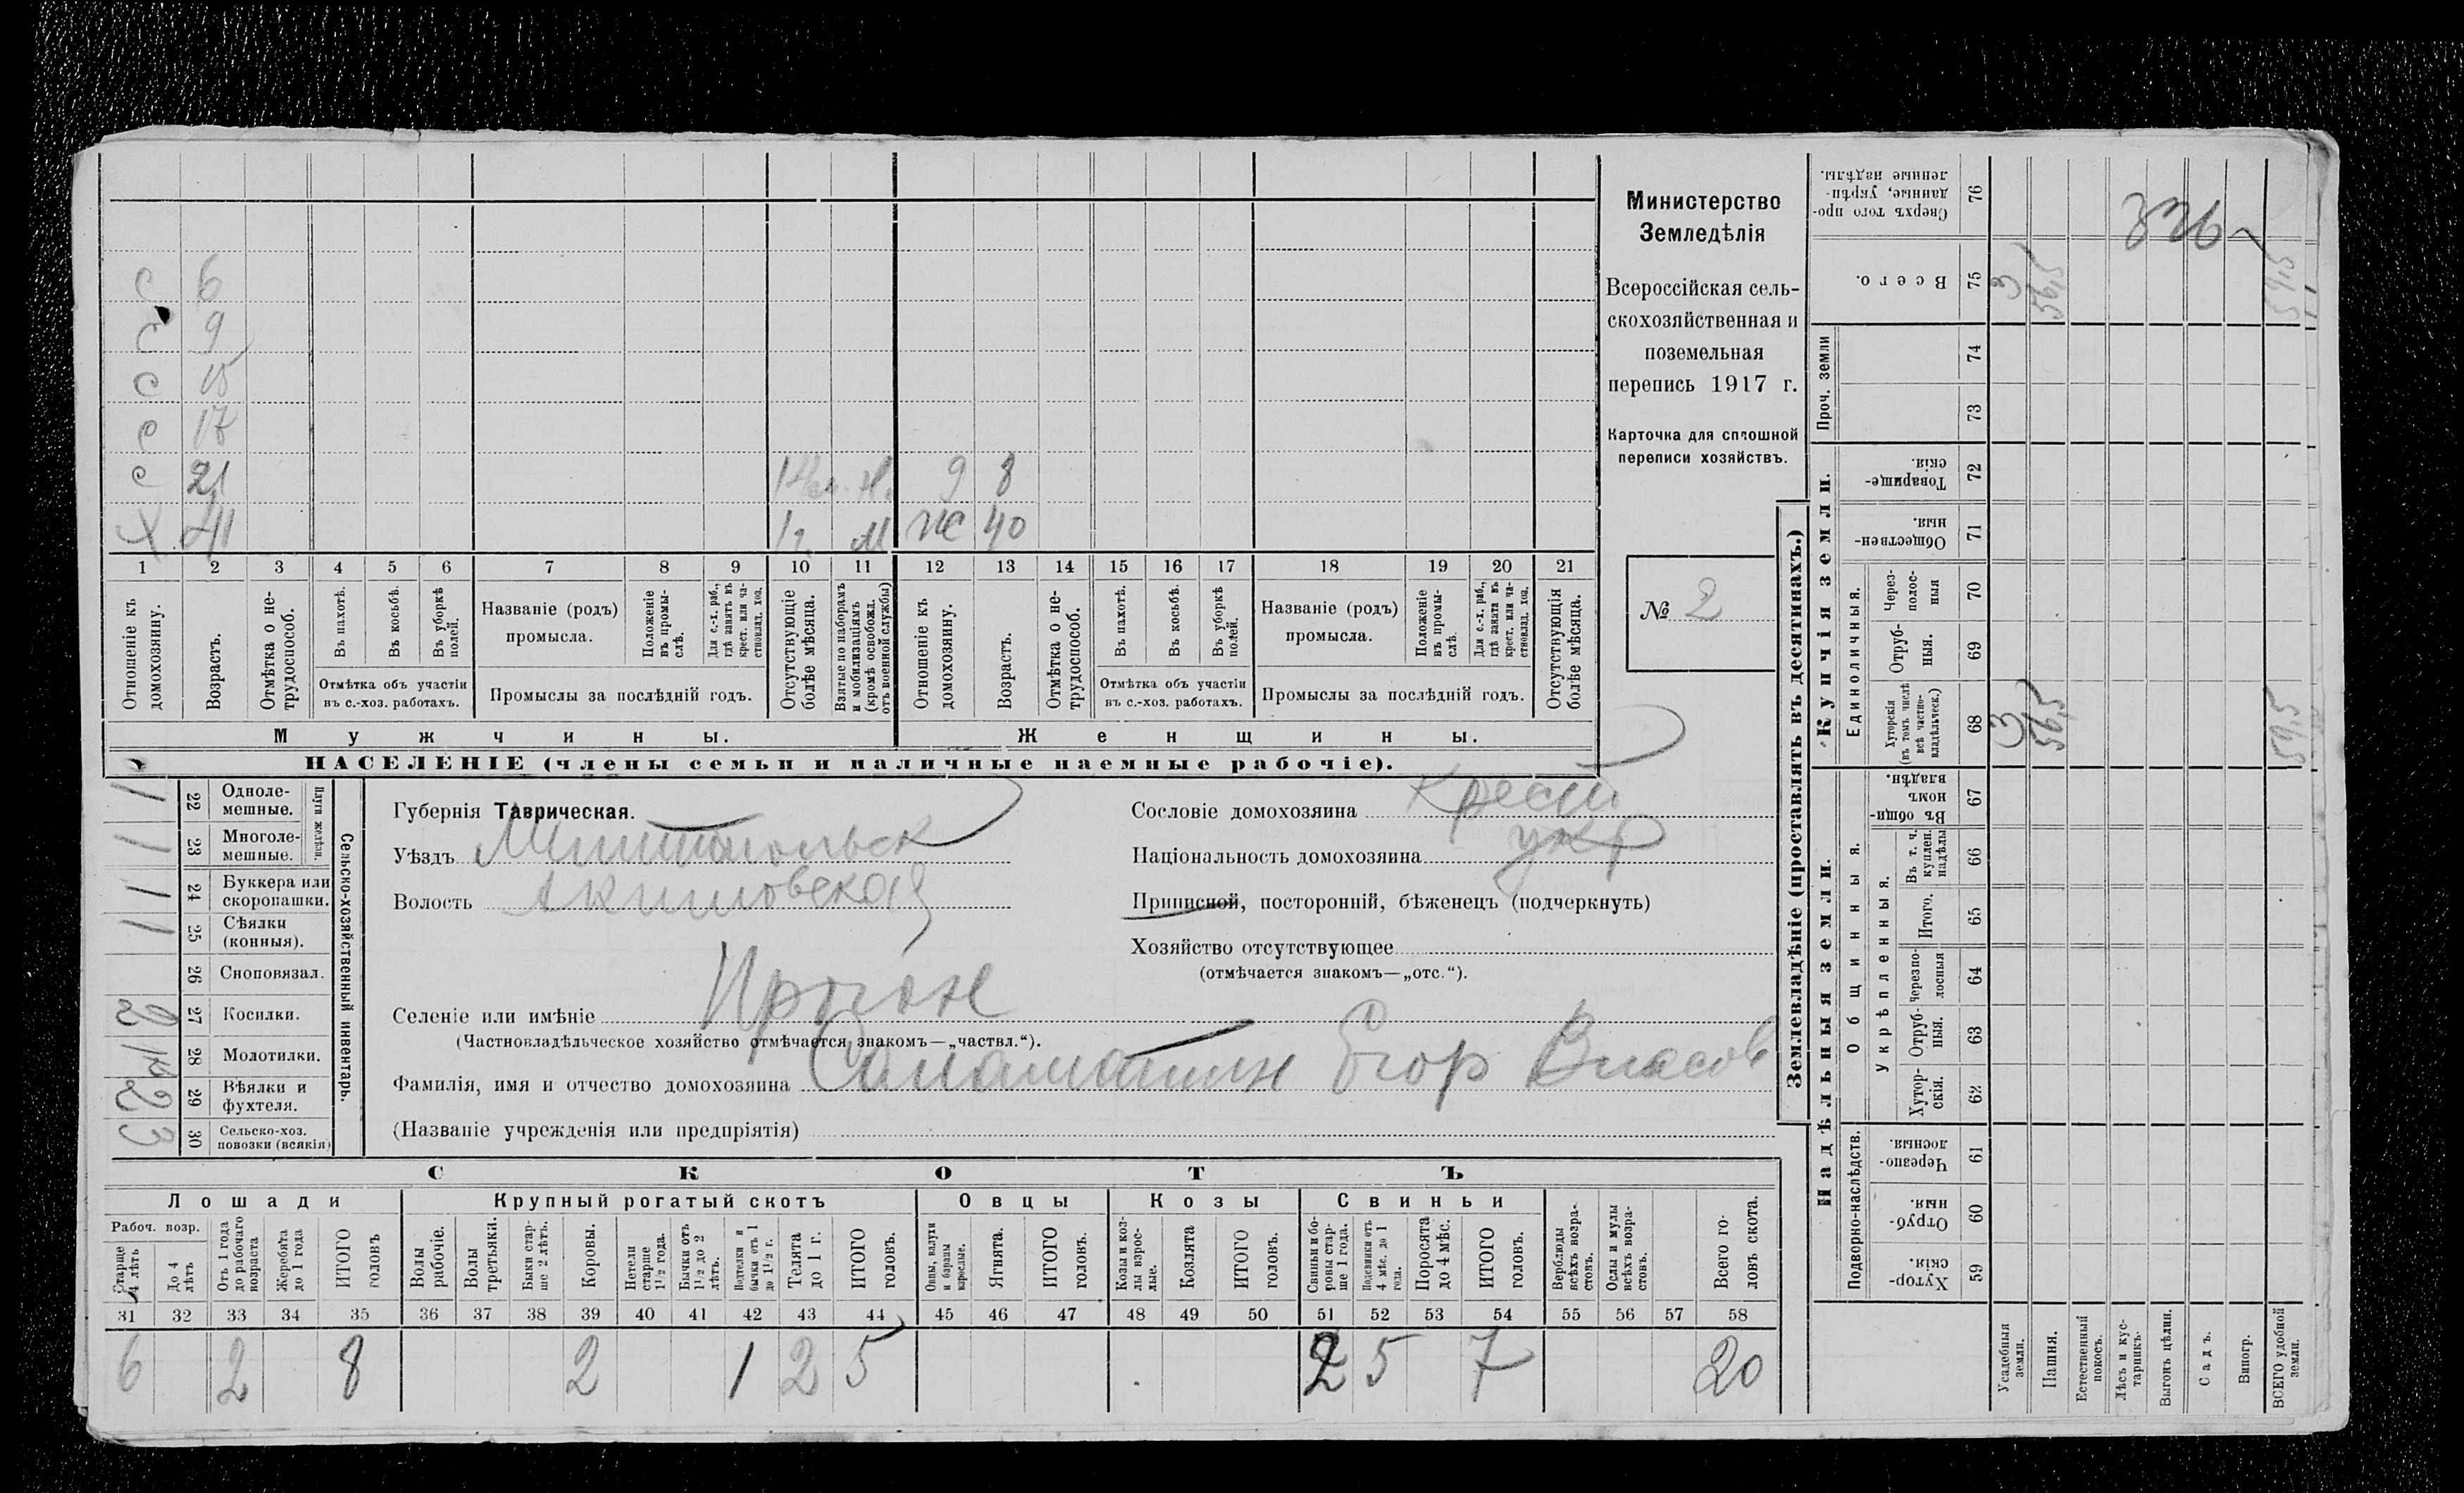 с 6
с 9
с 15
с 17
с 21 9 8
Х 41 1 г. М ж 40
1 2 3 4 5 6 7 8 9 10 11 12 13 14 15 16 17 18 19 20 21
Отношеніе къ домохозяину.
Возрастъ.
Отмѣтка о не-
трудоспособ.
Въ пахотѣ.
Въ косьбѣ.
Въ уборкѣ полей.
Отмѣтка объ участіи
въ с.-хоз. работахъ.
Названіе (родъ)
промысла.
Положеніе въ промы-
слѣ.
Для с.-х. раб.,
гдѣ занятъ въ
крест. или ча-
стновлад. хоз.
Промыслы за послѣдній годъ.
Отсутствующіе
болѣе мѣсяца.
Взятые по наборамъ
и мобилизаціямъ
(кромѣ освобожд.
отъ военной службы)
Отношеніе къ
домохозяину.
Возрастъ.
Отмѣтка о не-
трудоспособ.
Въ пахотѣ.
Въ косьбѣ.
Въ уборкѣ
полей.
Отмѣтка объ участіи
въ с.-хоз. работахъ.
Названіе (родъ)
промысла.
Положеніе
въ промы-
слѣ.
Для с.-х. раб.,
гдѣ занята въ
крест. или ча-
стновлад. хоз.
Промыслы за послѣдній годъ.
Отсутствующія
болѣе мѣсяца.
Мужчины.
Женщины.
НАСЕЛЕНІЕ (члены семьи и наличные наемные рабочіе).
Министерство
Земледѣлія
Всероссійская сель-
скохозяйственная и
поземельная
перепись 1917 г.
Карточка для сплошной
переписи хозяйствъ.
№ 2
1 22 Одноле-
мешные.
1 23 Многоле-
мешные.
Плуги желѣзн.
1 24 Буккера или
скоропашки.
1 25 Сѣялки
(конныя).
26 Сноповязал.
2 27 Косилки.
1к 28 Молотилки.
2 29 Вѣялки и
фухтеля.
3 30 Сельско-хоз.
повозки (всякія)
Сельско-хозяйственный инвентарь.
Губернія Таврическая.
Уѣздъ Мелитопольск
Волость Акимовская
Сословіе домохозяина крест
Національность домохозяина укр
Приписной, посторонній, бѣженецъ (подчеркнуть)
Хозяйство отсутствующее
(отмѣчается знакомъ—„отс.“).
Селеніе или имѣніе
(Частновладѣльческое хозяйство отмѣчается знакомъ—„частвл.“).
Фамилія, имя и отчество домохозяина Саламатин Егор Власов
(Названіе учрежденія или предпріятія)
СКОТЪ
Лошади
Рабоч. возр.
Старше
4 лѣтъ
До 4
лѣтъ
Отъ 1 года
до рабочаго
возраста
Жеребята
до 1 года
ИТОГО
головъ
Крупный рогатый скотъ
Волы
рабочіе.
Волы
третьяки.
Быки стар-
ше 2 лѣтъ.
Коровы.
Нетели
старше
1½ года.
Бычки отъ
1½ до 2
лѣтъ.
Подтелки и
бычки отъ 1
до 1½ г.
Телята
до 1 г.
ИТОГО
головъ.
Овцы
Овцы, валухи
и бараны
взрослые.
Ягнята.
ИТОГО
головъ.
Козы
Козы и коз-
лы взрос-
лые.
Козлята
ИТОГО
головъ.
Свиньи
Свиньи и бо-
ровы стар-
ше 1 года.
Подсвинки отъ
4 мѣс. до 1
года.
Поросята
до 4 мѣс.
ИТОГО
головъ.
Верблюды
всѣхъ возра-
стовъ.
Ослы и мулы
всѣхъ возра-
стовъ.
Всего го-
ловъ скота.
31 32 33 34 35 36 37 38 39 40 41 42 43 44 45 46 47 48 49 50 51 52 53 54 55 56 57 58
6 2 8 2 1 2 5 2 5 7 20
Землевладѣніе (проставлять въ десятинахъ.)
Купчія земли.
Надѣльныя земли.
Сверхъ того про-
данные, укрѣп-
ленные надѣлы.
76
Всего.
75 3 56,5 59,5
Проч. земли
74
73
Товарище-
скія.
72
Обществен-
ныя.
71
Единоличныя.
Через-
полос-
ныя
70
Отруб-
ныя.
69
Хуторскія
(въ томъ числѣ
всѣ частно-
владѣльческ.)
68 3 56,5 59,5
Общинныя.
Въ общин-
номъ
владѣн.
67
Укрѣпленныя.
Въ т. ч.
куплен.
надѣлы
66
Итого.
65
Черезпо-
лосныя
64
Отруб-
ныя.
63
Хутор-
скія.
62
Подворно-наслѣдств.
Черезпо-
лосныя.
61
Отруб-
ныя.
60
Хутор-
скія.
59
Усадебныя
земли.
Пашня.
Естественный
покосъ.
Лѣсъ и кус-
тарникъ.
Выгонъ цѣлин.
Садъ.
Виногр.
ВСЕГО удобной
земли.